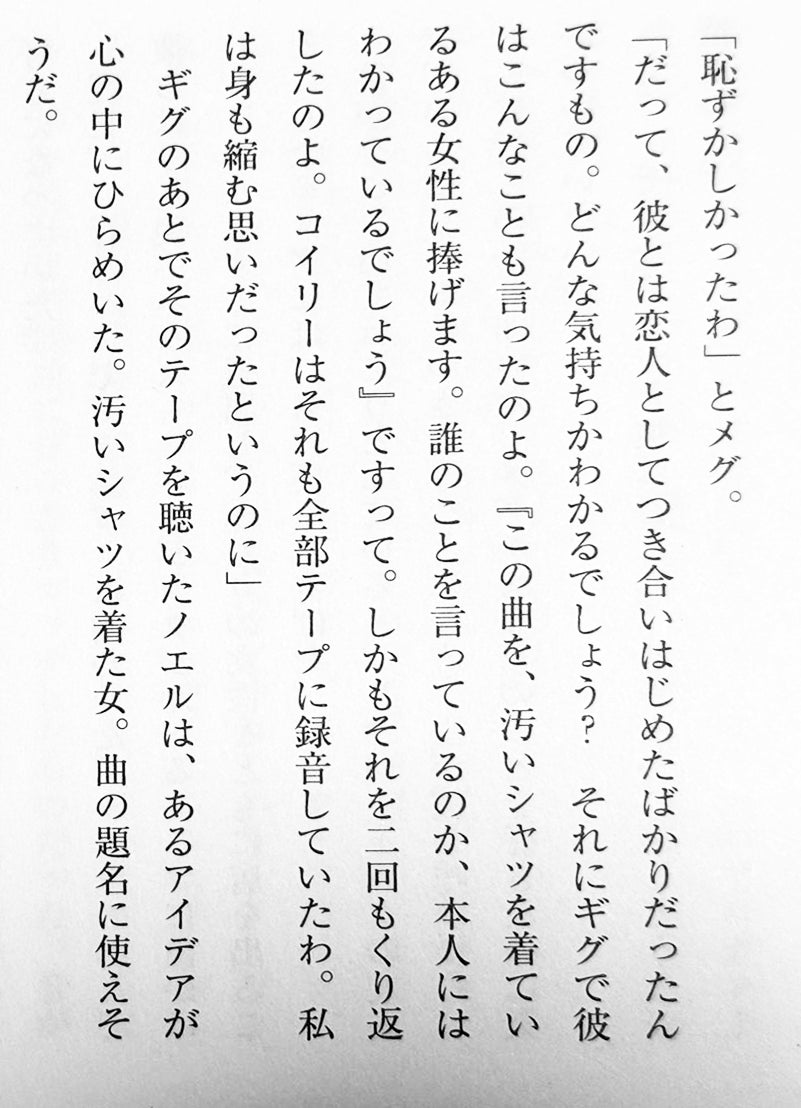 「恥ずかしかったわ」とメグ。
「だって、彼とは恋人としてつき合いはじめたばかりだったん
ですもの。どんな気持ちかわかるでしょう？　それにギグで彼
はこんなことも言ったのよ。『この曲を、汚いシャツを着てい
るある女性に捧げます。誰のことを言っているのか、本人には
わかっているでしょう』ですって。しかもそれを二回もくり返
したのよ。コイリーはそれも全部テープに録音していたわ。私
は身も縮む思いだったというのに」
　ギグのあとでそのテープを聴いたノエルは、あるアイデアが
心の中にひらめいた。汚いシャツを着た女。曲の題名に使えそ
うだ。